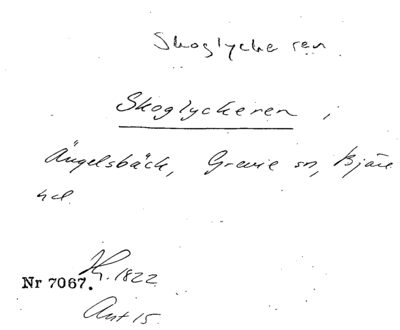 Skoglyckeren
Skoglyckeren,
Ängelsbäck, Grevie sn, Bjäre
hd
H. 1822
Nr 7067.
Ant 15